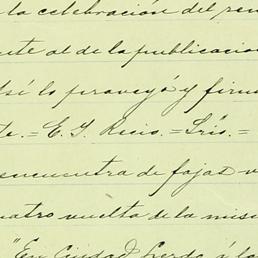 la celebración del rem
nte al de la publicacion
Así lo proveyó y firm
te.=E. Y. Recio.=Srio.=
encuentra de fojas v
uatro vuelta de la mism
"En Ciudad Lerdo á la